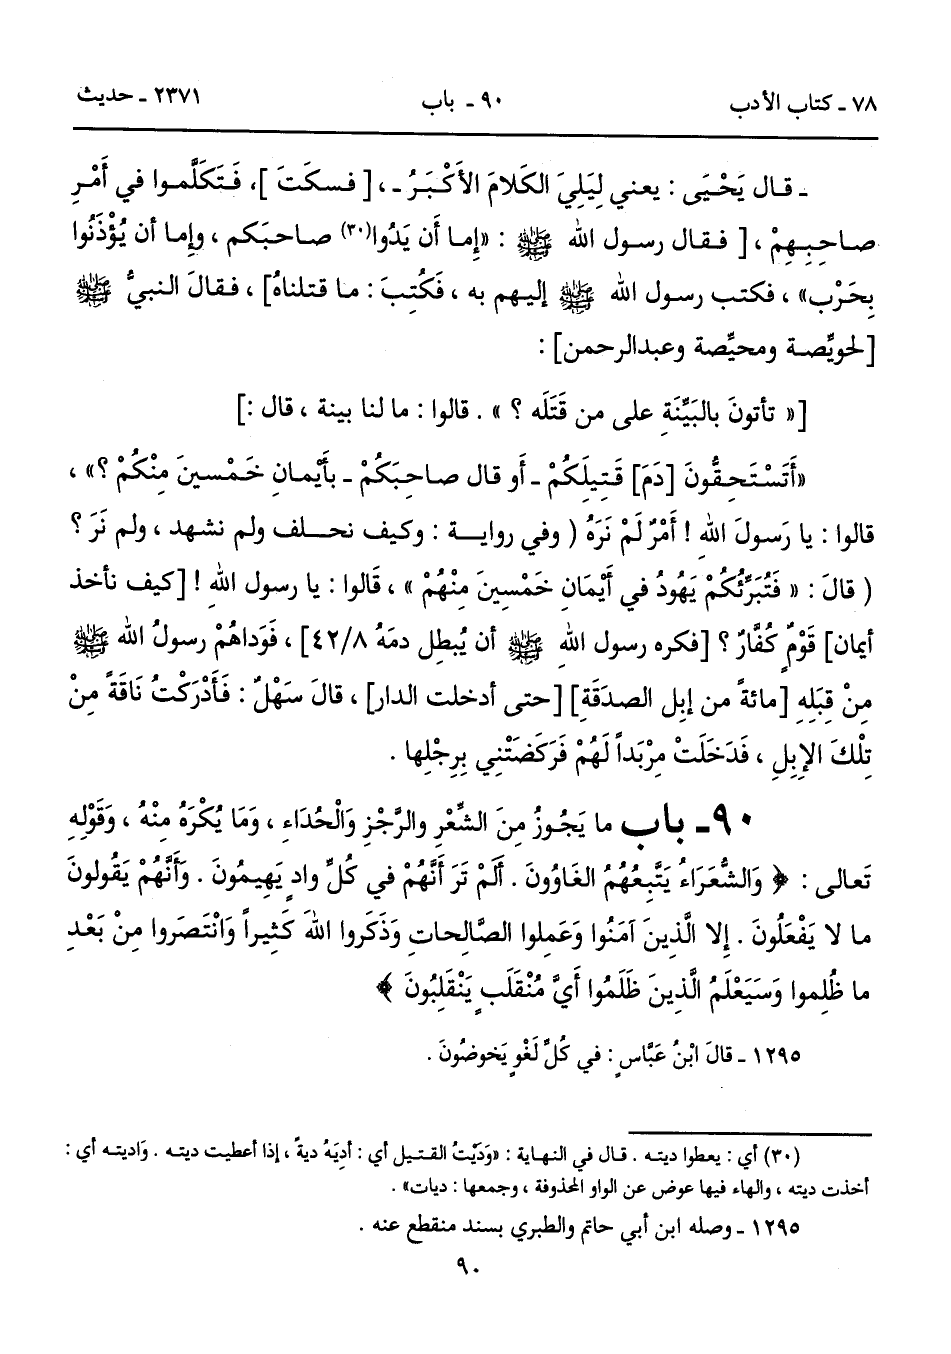 ٧٨ ـ كتاب الأدب ٩٠ ـ باب ٢٣٧١ ـ حديث
ـ قال يَحْيَى : يعني لِيَلِيَ الكَلامَ الأَكْبَرُ ـ ، [ فسكَتَ ]، فَتَكَلَّموا في أَمْرِ
صاحِبِهِمْ ، [ فقال رسول الله ﷺ : «إما أن يَدُوا(٣٠) صاحبَكم ، وإما أن يُؤْذَنُوا
بِحَرْب» ، فكتب رسول الله ﷺ إليهم به ، فَكُتِبَ : ما قتلناهُ] ، فقالَ النبيُّ ﷺ
[لحويِّصة ومحيِّصة وعبدالرحمن] :
[« تأتونَ بالبَيِّنَةِ على من قَتَلَه ؟ » . قالوا : ما لنا بينة ، قال :]
«أَتَسْتَحِقُّونَ [دَمَ] قَتِيلَكُمْ ـ أو قال صاحِبَكُمْ ـ بأَيْمانِ خَمْسينَ مِنْكُمْ ؟» ،
قالوا : يا رَسولَ اللهِ ! أَمْرٌ لَمْ نَرَهُ ( وفي رواية : وكيف نحلف ولم نشهد ، ولم نَرَ ؟
( قالَ : « فَتُبَرِّئُكُمْ يَهُودُ في أَيْمانِ خَمْسينَ مِنْهُمْ » ، قَالُوا : يا رسول اللهِ ! [كيف نأخذ
أيمان] قَوْمٍ كُفَّارٌ ؟ [فكره رسول الله ﷺ أن يُبطل دمَهُ ٤٢/٨] ، فَوَداهُمْ رسولُ الله ﷺ
مِنْ قِبَلِهِ [مائةً من إبل الصدَقَةِ] [حتى أدخلت الدار] ، قالَ سَهْلٌ : فَأَدْرَكْتُ نَاقَةً مِنْ
تِلْكَ الإبِلِ ، فَدَخَلَتْ مِرْبَداً لَهُمْ فَرَكَضَتْنِي بِرِجْلِها .
٩٠ـ باب ما يَجُوزُ مِنَ الشِّعْرِ والرَّجْزِ وَالْحُدَاءِ ، وَمَا يُكْرَهُ مِنْهُ ، وَقَوْلِهِ
تَعالى : ﴿ وَالشُّعَرَاءُ يَتَّبِعُهُمُ الغَاوُونَ . أَلَمْ تَرَ أَنَّهُمْ في كُلِّ وادٍ يَهِيمُونَ . وَأَنَّهُمْ يَقُولونَ
ما لا يَفْعَلُونَ . إِلا الَّذينَ آمَنُوا وَعَملوا الصَّالِحاتِ وَذَكَروا اللهَ كَثيراً وَانْتَصَروا مِنْ بَعْدِ
ما ظُلِموا وَسَيَعْلَمُ الَّذينَ ظَلَمُوا أَيَّ مُنْقَلَبٍ يَنْقَلِبُونَ ﴾
١٢٩٥ ـ قالَ ابْنُ عَبَّاسٍ : في كُلِّ لَغْوٍ يَخوضُونَ .
(٣٠) أي : يعطوا ديته . قال في النهاية : «وَدَيْتُ القتيل أي : أدِيَهُ ديةً ، إذا أعطيت ديته . وَاديته أي :
أخذت ديته ، والهاء فيها عوض عن الواو المحذوفة ، وجمعها : ديات» .
١٢٩٥ ـ وصله ابن أبي حاتم والطبري بسند منقطع عنه .
٩٠